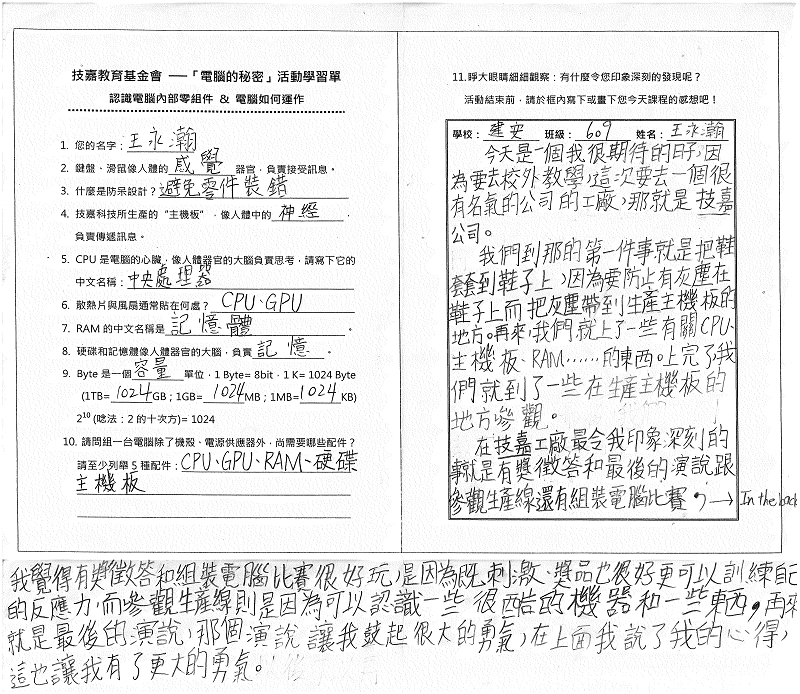 技嘉教育基金會 ──「電腦的秘密」活動學習單
認識電腦內部零組件 & 電腦如何運作
1. 您的名字：王永瀚
2. 鍵盤、滑鼠像人體的 感覺 器官，負責接受訊息。
3. 什麼是防呆設計？避免零件裝錯
4. 技嘉科技所生產的“主機板”，像人體中的 神經，
負責傳遞訊息。
5. CPU 是電腦的心臟，像人體器官的大腦負責思考，請寫下它的
中文名稱：中央處理器
6. 散熱片與風扇通常貼在何處？ CPU、GPU
7. RAM 的中文名稱是 記憶體 。
8. 硬碟和記憶體像人體器官的大腦，負責 記憶 。
9. Byte 是一個 容量 單位，1 Byte= 8bit，1 K= 1024 Byte
(1TB= 1024 GB；1GB= 1024 MB；1MB= 1024 KB)
2¹⁰ (唸法：2 的十次方)= 1024
10. 請問組一台電腦除了機殼、電源供應器外，尚需要哪些配件？
請至少列舉 5 種配件：CPU、GPU、RAM、硬碟
主機板
11.睜大眼睛細細觀察：有什麼令您印象深刻的發現呢？
活動結束前，請於框內寫下或畫下您今天課程的感想吧！
學校：建安 班級：609 姓名：王永瀚
今天是一個我很期待的日子，因
為要去校外教學，這次要去一個很
有名氣的公司的工廠，那就是技嘉
公司。
我們到那的第一件事就是把鞋
套套到鞋子上，因為要防止有灰塵在
鞋子上而把灰塵帶到生產主機板的
地方。再來，我們就上了一些有關CPU、
主機板、RAM……的東西。上完了我
們就到了一些在生產主機板的
地方參觀。
在技嘉工廠最令我印象深刻的
事就是有獎徵答和最後的演說跟
參觀生產線還有組裝電腦比賽，→ In the back
我覺得有獎徵答和組裝電腦比賽很好玩，是因為既刺激、獎品也很好更可以訓練自己
的反應力，而參觀生產線則是因為可以認識一些很酷的機器和一些東西，再來
就是最後的演說，那個演說讓我鼓起很大的勇氣，在上面我說了我的心得，
這也讓我有了更大的勇氣。